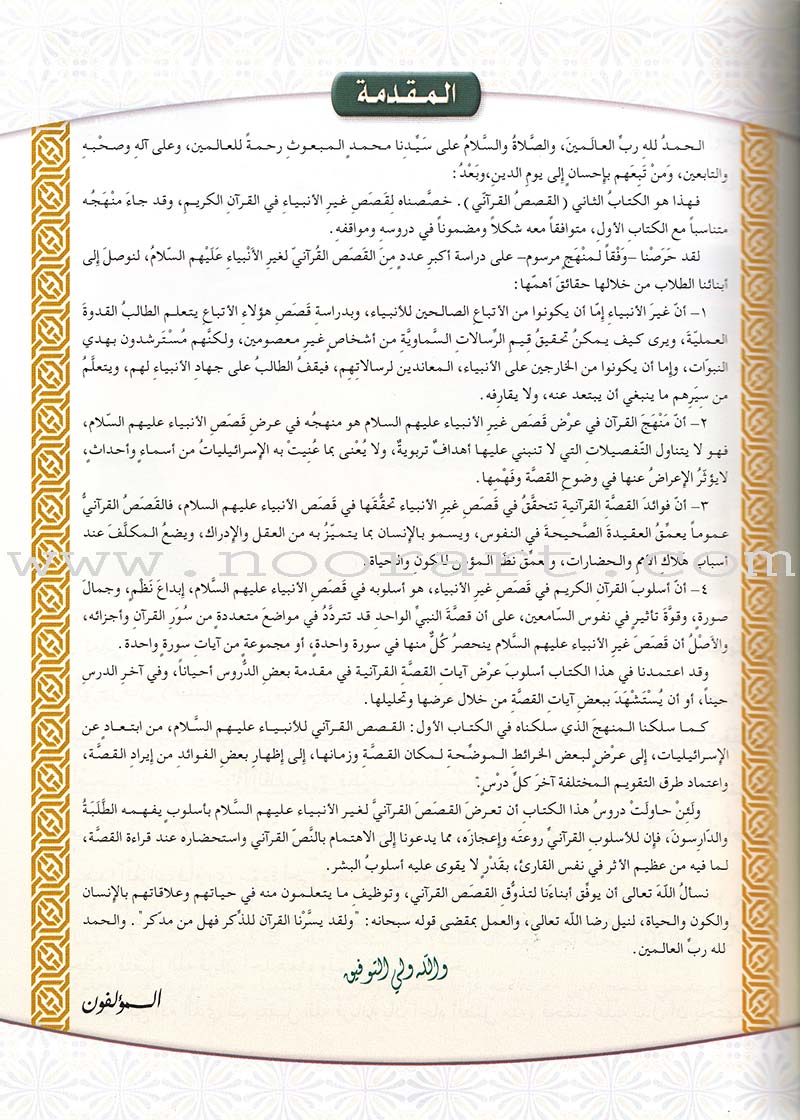 المقدمة
الحمدُ للهِ ربِّ العالَمينَ، والصَّلاةُ والسَّلامُ على سَيِّدِنا محمدٍ المبعوثِ رحمةً للعالمين، وعلى آلهِ وصحْبِهِ
والتابعين، ومَنْ تَبِعَهم بإحسانٍ إلى يومِ الدينِ، وبَعْدُ:
فهذا هو الكتابُ الثاني (القصصُ القرآنّي). خصَّصناه لقَصَصِ غيرِ الأنبياءِ في القرآنِ الكريمِ، وقد جاءَ منْهَجُه
متناسباً مع الكتابِ الأولِ، متوافقاً معه شكلاً ومضموناً في دروسِه ومواقفِه.
لقد حَرَصْنا –وَفْقاً لمنْهَجٍ مرسومٍ– على دراسة أكبرِ عددٍ مِنَ القَصَصِ القُرآنيِّ لغيرِ الأنْبياءِ عَلَيْهم السّلامُ، لنوصلَ إلى
أبنائنا الطلاب من خلالها حقائقَ أهمُّها:
١– أنّ غيرَ الأنبياءِ إمَّا أن يكونوا من الأتباعِ الصالحين للأنبياءِ، وبدراسةِ قَصَصِ هؤلاءِ الأتباعِ يتعلمُ الطالبُ القدوةَ
العمليّةَ، ويرى كيف يمكنُ تحقيقُ قِيمِ الرِّسالاتِ السَّماويَّةِ من أشخاصٍ غيرِ معصومين، ولكنَّهم مُسْتَرشدون بهدي
النبوّات، وإما أن يكونوا من الخارجين على الأنبياء، المعاندين لرسالاتِهِم، فيقفُ الطالبُ على جهادِ الأنبياءِ لهم، ويتعلَّمُ
من سِيَرِهم ما ينبغي أن يبتعد عنه، ولا يقارِفه.
٢– أنّ مَنْهَجَ القرآنِ في عرْضِ قَصَصِ غيرِ الأنبياءِ عليهم السلام هو منهجُه في عرضِ قَصَصِ الأنبياء عليهم السّلام،
فهو لا يتناول التّفصيلاتِ التي لا تنبني عليها أهدافٌ تربويةٌ، ولا يُعْنى بما عُنِيتْ به الإسرائيلياتُ من أسماءٍ وأحداثٍ،
لايؤثِّرُ الإعراضُ عنها في وضوحِ القصّةِ وفَهْمِها.
٣– أنّ فوائدَ القصّةِ القرآنيةِ تتحقَّقُ في قَصَصِ غيرِ الأنبياء تحقُّقَها في قَصَصِ الأنبياء عليهم السلام، فالقَصَصُ القرآنيُّ
عموماً يعمِّقُ العقيدةَ الصَّحيحةَ في النفوس، ويسمو بالإنسان بما يتميّزُ به من العقل والإدراك، ويضعُ المكلَّفَ عند
أسبابِ هلاكِ الأممِ والحضارات، ويعمّق نظرَ المؤمنِ للكونِ والحياة.
٤– أنّ أسلوبَ القرآنِ الكريمِ في قَصَصِ غيرِ الأنبياءِ، هو أسلوبه في قَصَصِ الأنبياء عليهم السَّلام، إبداعَ نَظْمٍ، وجمالَ
صورةٍ، وقوَّةَ تأثيرٍ في نفوس السّامعين، على أن قصَّةَ النبيِّ الواحدِ قد تتردَّدُ في مواضعَ متعددةٍ من سُوَرِ القرآنِ وأجزائه،
والأصْلُ أن قَصَصَ غيرِ الأنبياءِ عليهم السَّلام ينحصرُ كُلٌّ منها في سورة واحدةٍ، أو مجموعةٍ من آياتِ سورةٍ واحدة.
وقد اعتمدنا في هذا الكتاب أسلوبَ عرْضِ آياتِ القصَّةِ القرآنيةِ في مقدمة بعضِ الدُّروس أحياناً، وفي آخرِ الدرسِ
حيناً، أو أن يُسْتَشْهَدَ ببعضِ آياتِ القصَّةِ من خلال عرضها وتحليلها.
كما سلكنا المنهجَ الذي سلكناه في الكتاب الأول: القصص القرآني للأنبياء عليهم السَّلام، من ابتعادٍ عن
الإسرائيليات، إلى عرْضٍ لبعضِ الخرائط الموضّحة لمكان القصَّة وزمانها، إلى إظهارِ بعضِ الفوائد من إيرادِ القصَّة،
واعتماد طرق التقويم المختلفة آخرَ كلِّ درْسٍ.
ولَئِنْ حاولَتْ دروسُ هذا الكتابِ أن تعرضَ القصَصَ القرآنيَّ لغير الأنبياءِ عليهم السَّلام بأسلوبٍ يفهمه الطَّلَبَةُ
والدّارِسونَ، فإن للأسلوبِ القرآنيِّ روعتَه وإعجازَه، مما يدعونا إلى الاهتمام بالنَّص القرآني واستحضاره عند قراءة القصَّة،
لما فيه من عظيمِ الأثر في نفس القارئ، بقَدْرٍ لا يقوى عليه أسلوبُ البشر.
نسألُ اللّهَ تعالى أن يوفّق أبناءَنا لتذوُّقِ القصَصِ القرآني، وتوظيفِ ما يتعلمون منه في حياتهم وعلاقاتهم بالإنسان
والكون والحياة، لنيل رضا اللّه تعالى، والعمل بمقضى قوله سبحانه: "ولقد يسَّرْنا القرآن للذِّكر فهل من مدّكر". والحمد
لله ربِّ العالمين.
واللّه ولي التوفيق
المؤلفون
www.noorart.com